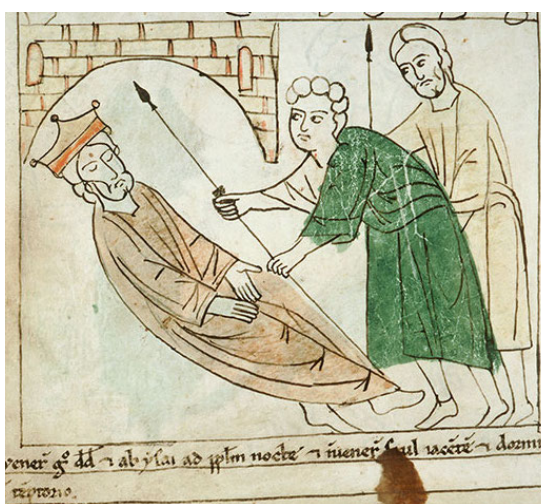 vener̄ gº dd̄ ⁊ abysai ad pplm nocte ⁊ īvener̄ Saul iacētē ⁊ dormi
tēptorio.